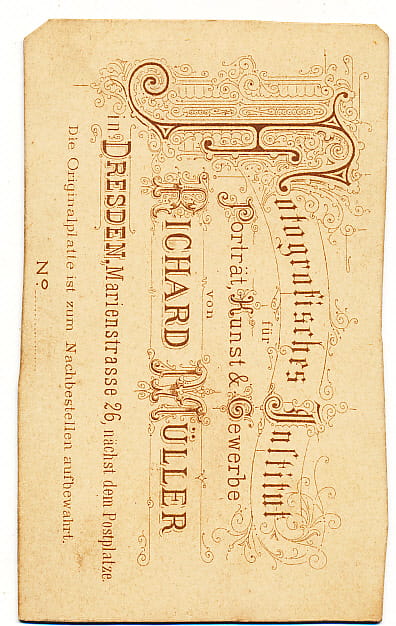 Fotografisches Institut
für
Porträt, Kunst & Gewerbe
von
RICHARD MÜLLER
in DRESDEN, Marienstrasse 26, nächst dem Postplatze.
Die Originalplatte ist zum Nachbestellen aufbewahrt.
No.